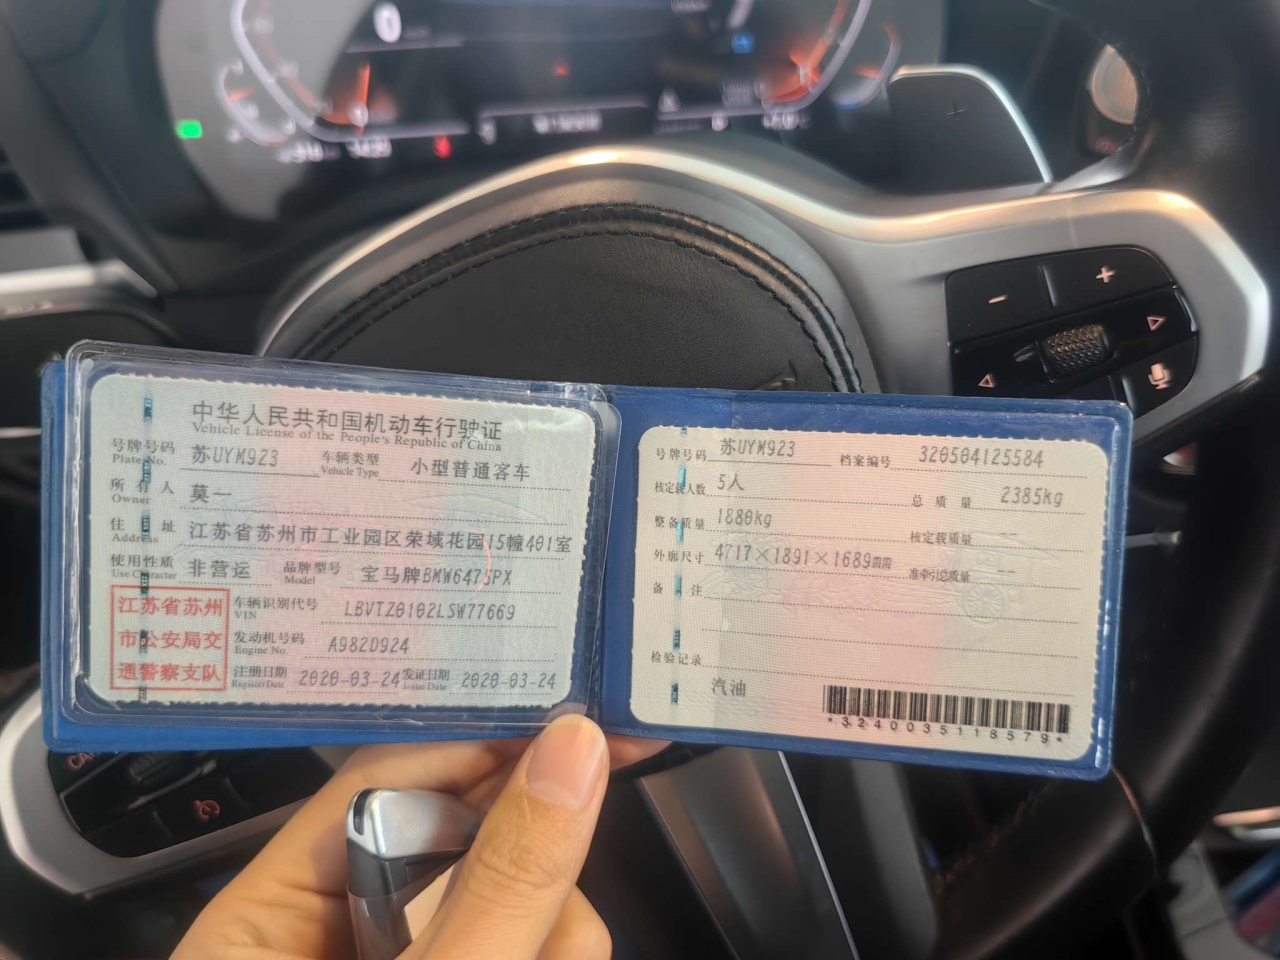 中华人民共和国机动车行驶证
Vehicle License of the People's Republic of China
号牌号码 苏UYM923 车辆类型 小型普通客车
Plate No. Vehicle Type
所有人 莫一
Owner
住址 江苏省苏州市工业园区荣域花园15幢401室
Address
使用性质 非营运 品牌型号 宝马牌BMW6475PX
Use Character Model
江苏省苏州
市公安局交
通警察支队
车辆识别代号 LBVTZ0102LSW77669
VIN
发动机号码 A982D924
Engine No.
注册日期 2020-03-24 发证日期 2020-03-24
Register Date Issue Date
号牌号码 苏UYM923 档案编号 320504125584
核定载人数 5人 总质量 2385kg
整备质量 1880kg 核定载质量 --
外廓尺寸 4717×1891×1689mm 准牵引总质量 --
备注
检验记录
汽油
*3240035118579*